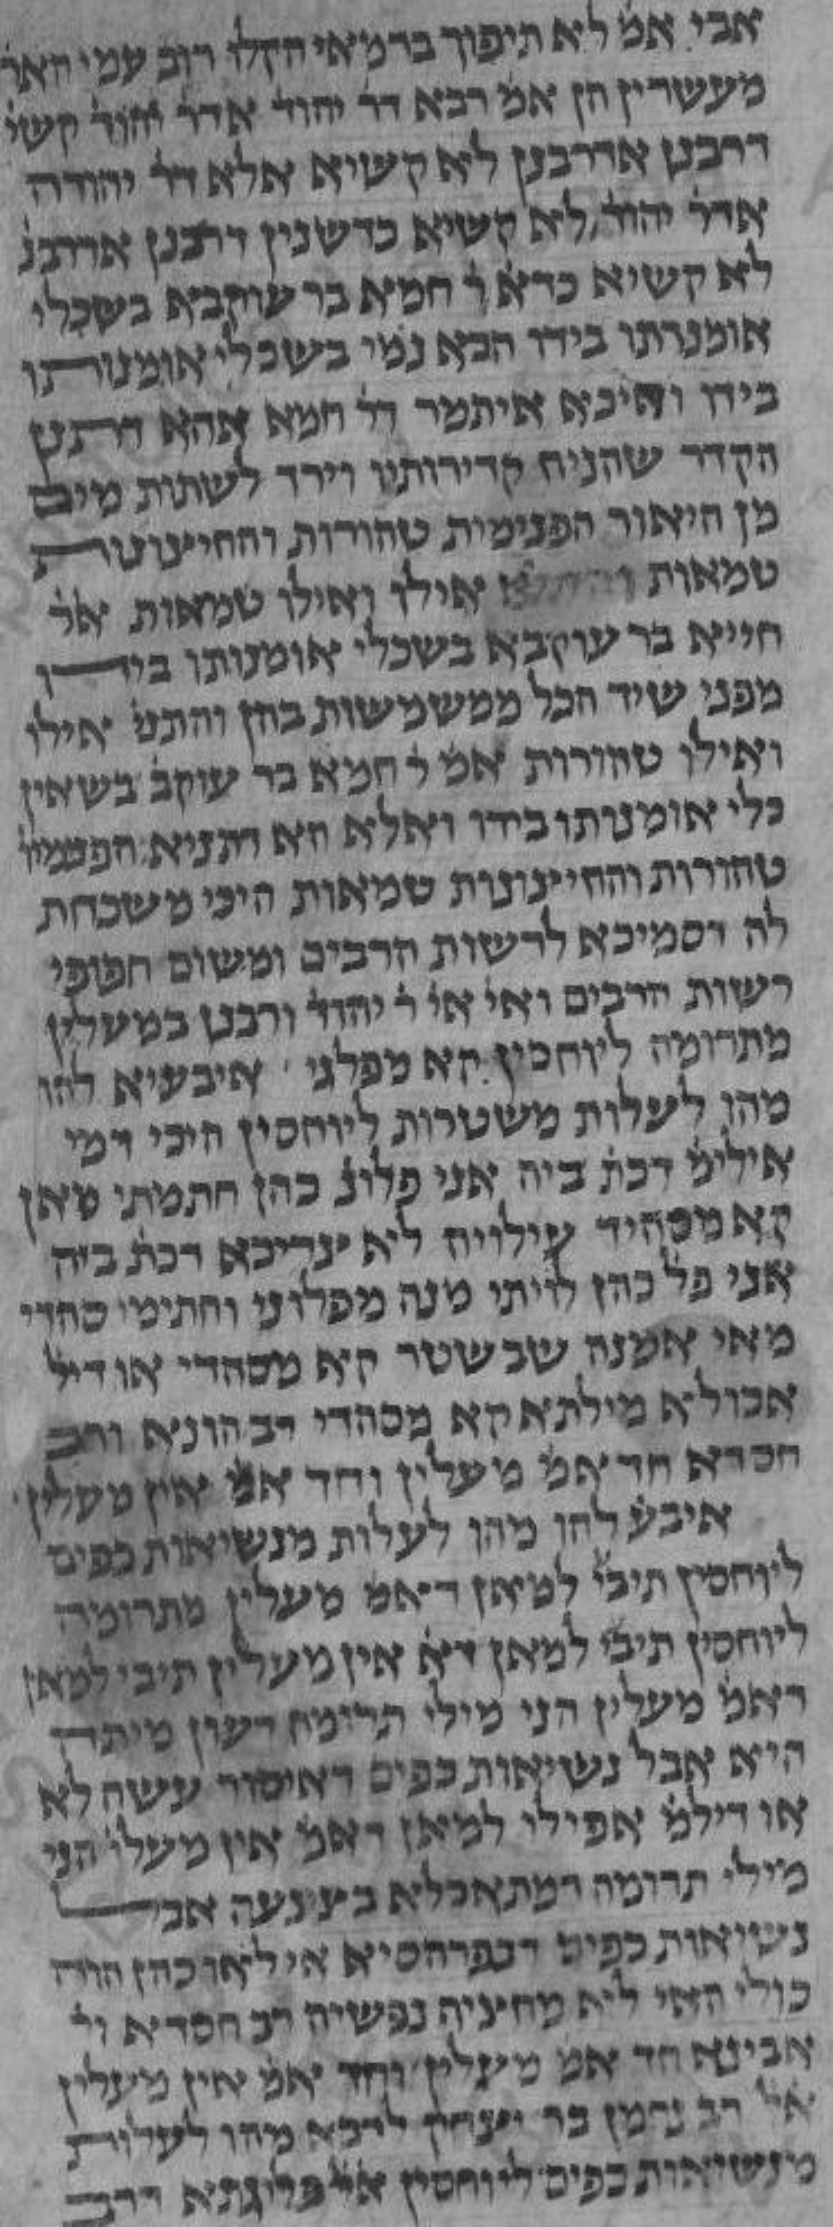 אבי אמ׳ לא תיפוך ברמאי הקלו רוב עמי האר׳
מעשרין הן אמ׳ רבא דר׳ יהוד׳ אדר׳ יהוד׳ קשי׳
דרבנן אדרבנן לא קשיא אלא דר׳ יהודה
אדר׳ יהוד׳ לא קשיא כדשנין דרבנן אדרבנ׳
לא קשיא כדא׳ ר׳ חמא בר עוקבא בשכלי
אומנותו בידו הכא נמי בשכלי אומנותו
בידו ואיכא איתמר דר׳ חמא אהא דתנן
הקדר שהניח קדירותיו וירד לשתות מים
מן היאור הפנימית טהורות והחיצונות
טמאות והתניא אילו ואילו טמאות אר׳
חייא בר עוקבא בשכלי אומנותו בידו
מפני שיד הכל ממשמשות בהן והתנ׳ אילו
ואילו טהורות אמ׳ ר׳ חמא בר עוקב׳ בשאין
כלי אומנותו בידו ואלא הא דתניא הפנמיו׳
טהורות והחיצונות טמאות היכי משכחת
לה דסמיכא לרשות הרבים ומשום חפופי
רשות הרבים ואי אי׳ ר׳ יהוד׳ ורבנן במעלין
מתרומה ליוחסין קא מפלגי איבעיא להו
מהו לעלות משטרות ליוחסין היכי דמי
אילימ׳ דכת׳ ביה אני פלונ׳ כהן חתמתי מאן
קא מסהיד עילויה לא צריכא דכת׳ ביה
אני פל׳ כהן לויתי מנה מפלוני וחתימי סהדי
מאי אמנה שבשטר קא מסהדי או דיל׳
אכולא מילתא קא מסהדי רב הונא ורב
חסדא חד אמ׳ מעלין וחד אמ׳ אין מעלין
איבע׳ להו מהו לעלות מנשיאות כפים
ליוחסין תיבי׳ למאן דאמ׳ מעלין מתרומה
ליוחסין תיבי׳ למאן דא׳ אין מעלין תיבי׳ למאן
דאמ׳ מעלין הני מילי תרומה דעון מיתה
היא אבל נשיאות כפים דאיסור עשה לא
או דילמ׳ אפילו למאן דאמ׳ אין מעלי׳ הני
מילי תרומה דמתאכלא בצינעה אבל
נשיאות כפים דבפרהסיא אי לאו כהן הוה
כולי האי לא מחציה נפשיה רב חסדא ור׳
אבינא חד אמ׳ מעלין וחד אמ׳ אין מעלין
אל׳ רב נחמן בר יצחק לרבא מהו לעלות
מנשיאות כפים ליוחסין אל׳ פלוגתא דרב